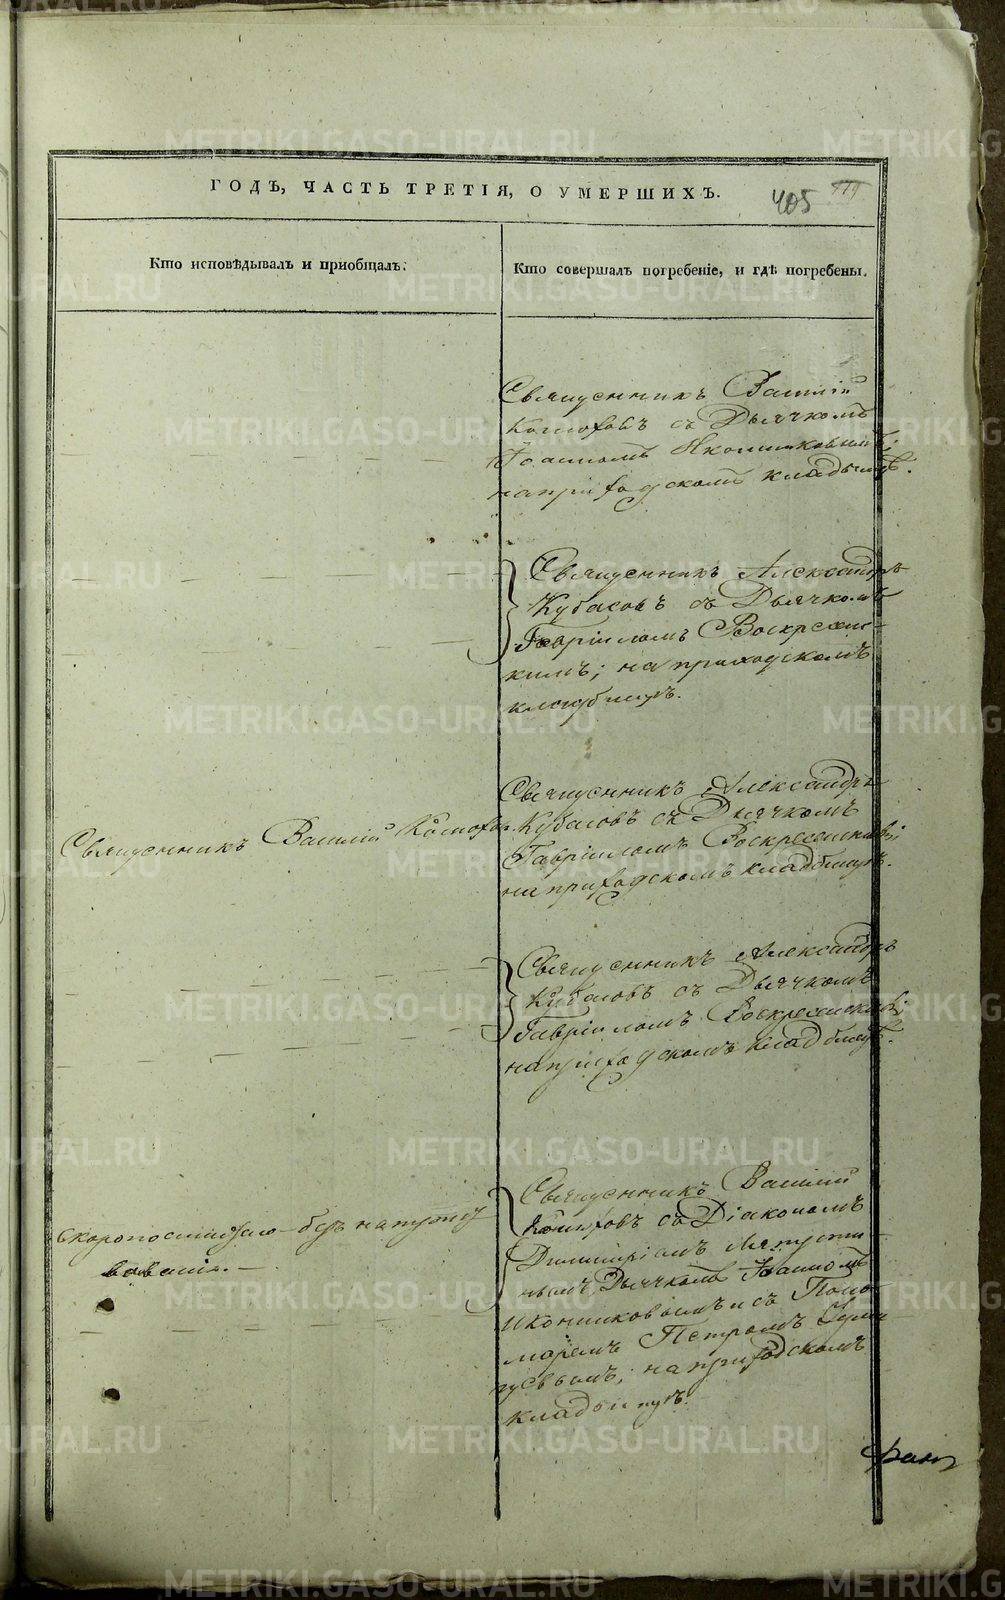 ГОДЪ, ЧАСТЬ ТРЕТІЯ, О УМЕРШИХЪ.
405
Кто исповѣдывалъ и приобщалъ.
Кто совершалъ погребеніе, и гдѣ погребены.
Священникъ Василій
съ Дьячкомъ
Іоанномъ Иконниковымъ;
на приходскомъ кладбищѣ.
Священникъ Александръ
Кубасовъ съ Дьячкомъ
Гавріиломъ Воскресенс-
кимъ; на приходскомъ
кладбищѣ.
Священникъ Василій
Священникъ Александръ
Кубасовъ съ Дьячкомъ
Гавріиломъ Воскресенскимъ;
на приходскомъ кладбищѣ.
Священникъ Александръ
Кубасовъ съ Дьячкомъ
Гавріиломъ Воскресенскимъ;
на приходскомъ кладбищѣ.
скоропостижно безъ напутст
вованія.
Священникъ Василій
съ Діакономъ
Димитріемъ
нымъ, Дьячкомъ Іоанномъ
Иконниковымъ и съ Поно
маремъ Петромъ
на приходскомъ
кладбищѣ.
METRIKI.GASO-URAL.RU